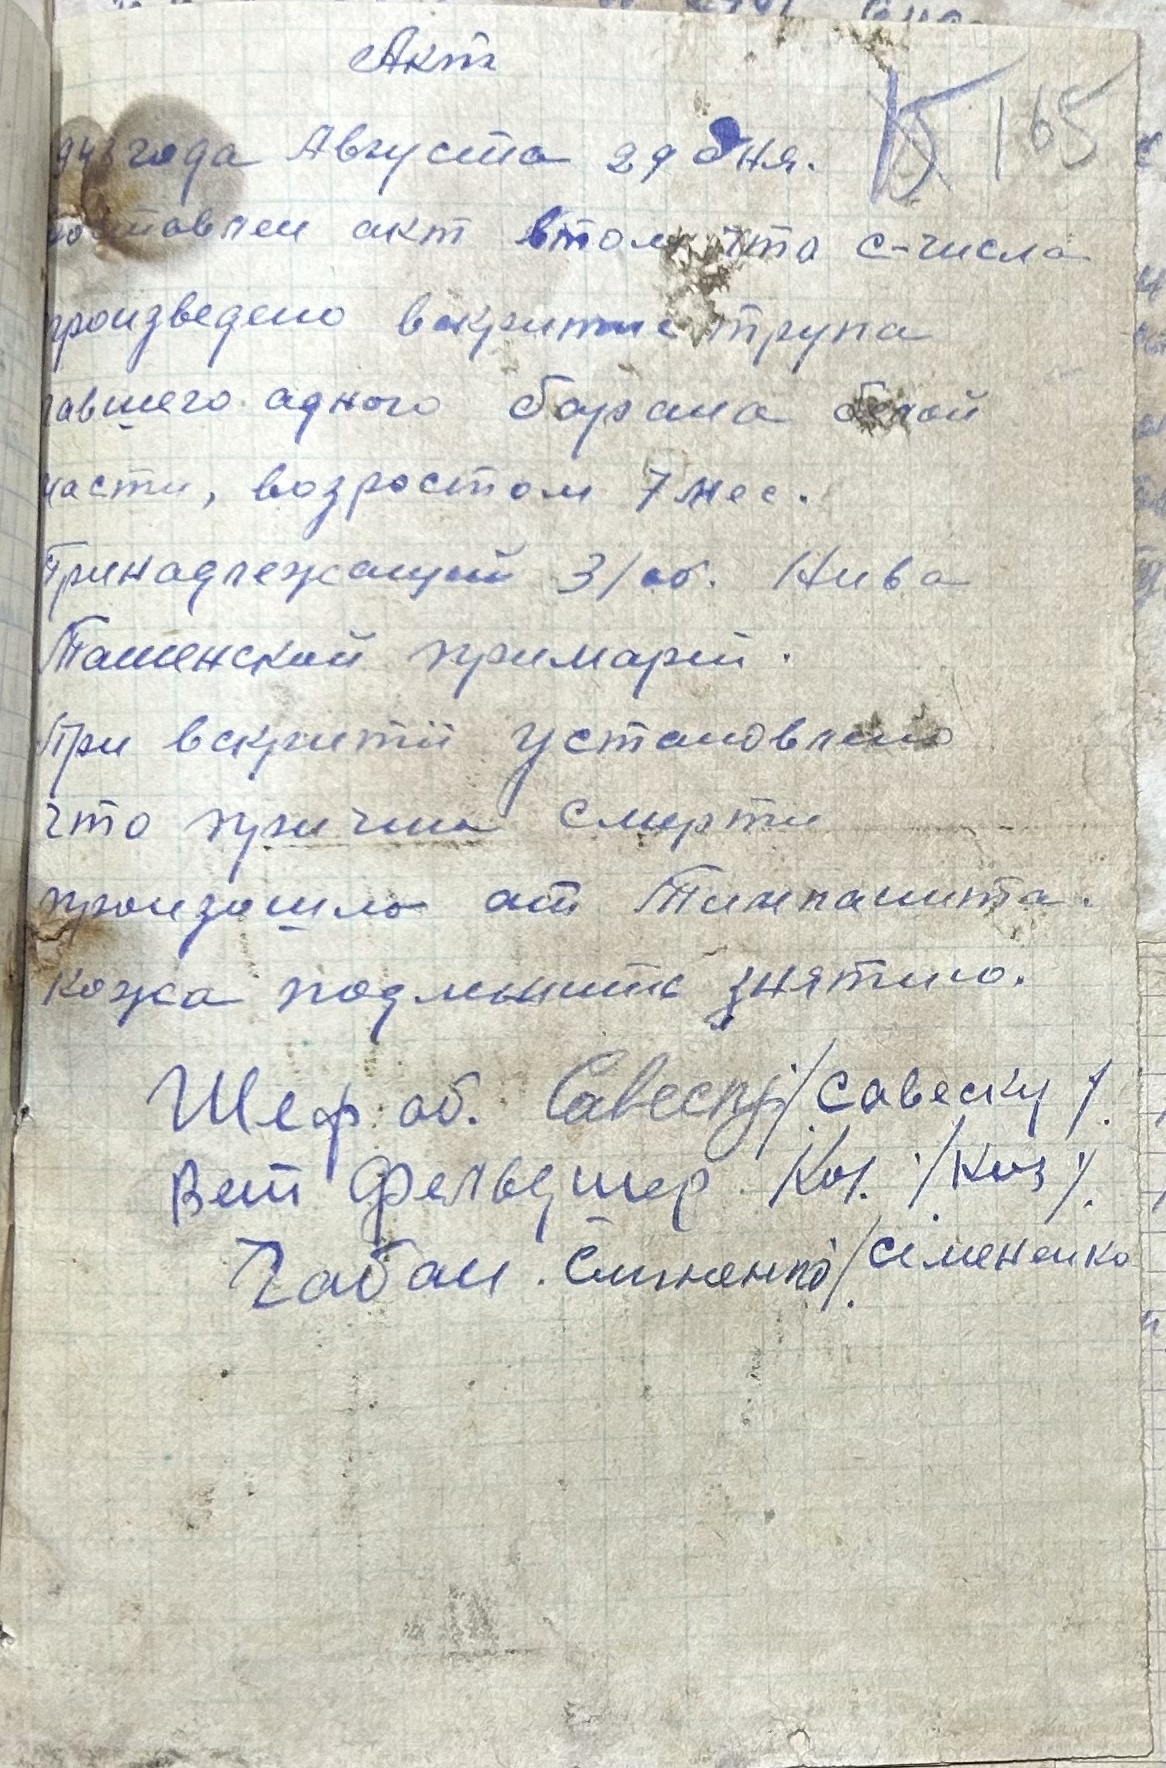 Акт
165
943 года Августа 29 дня.
составлен акт втом что с-числа
произведено вскритие трупа
павшего адного барана белой
масти, возростом 7 мес.
Принадлежащий З/об. Нива
Ташенской примарій.
При вскритіі установлено
что причина смерти
произошло от Тимпанита.
кожа подлежить знятию.
Шеф об. Савеску /Савеску/.
Вет Фельдшер Коз. /Коз/.
Чабан. Сименко /Сімененко